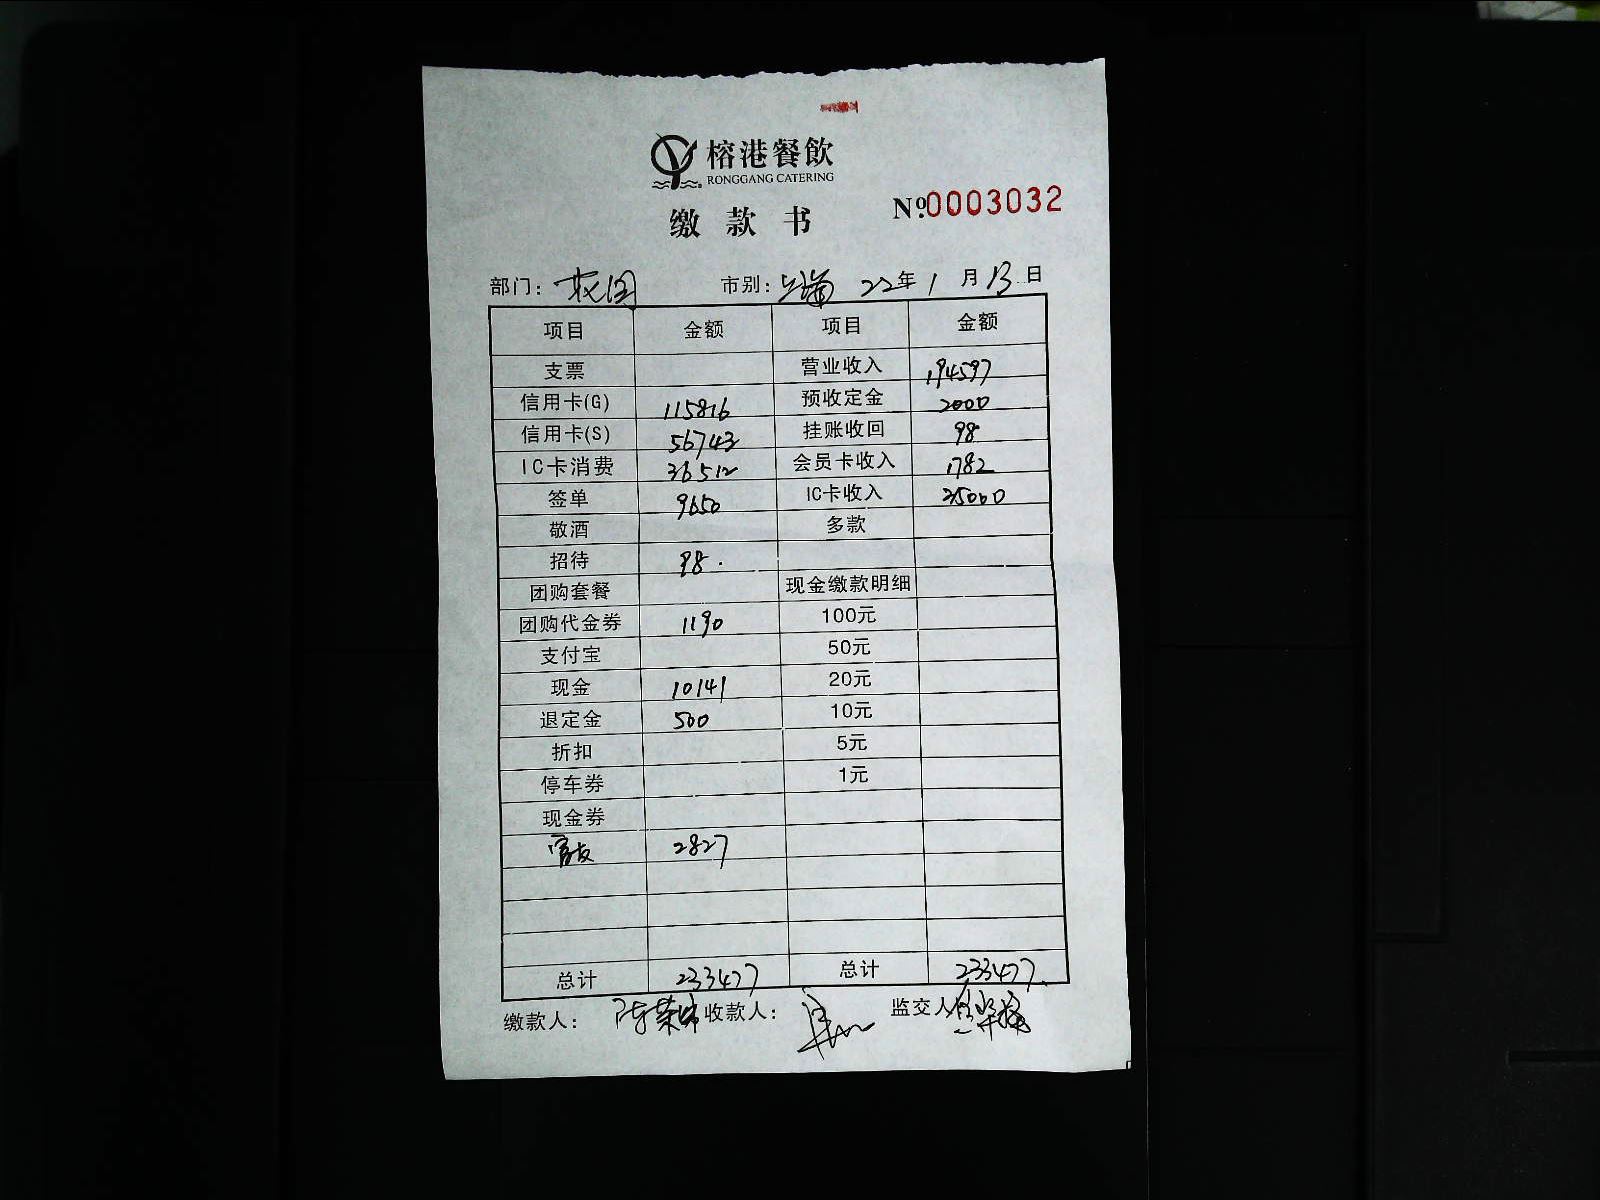 榕港餐飲
RONGGANG CATERING
缴款书
№0003032
部门：花园 市别： 22年1月13日
项目 金额 项目 金额
支票 营业收入 194597
信用卡(G) 115816 预收定金 2000
信用卡(S) 56743 挂账收回 98
IC卡消费 36512 会员卡收入 1782
签单 9650 IC卡收入 35000
敬酒 多款
招待 98.
团购套餐 现金缴款明细
团购代金券 1190 100元
支付宝 50元
现金 10141 20元
退定金 500 10元
折扣 5元
停车券 1元
现金券
2827
总计 233477 总计 233477
缴款人： 收款人： 监交人